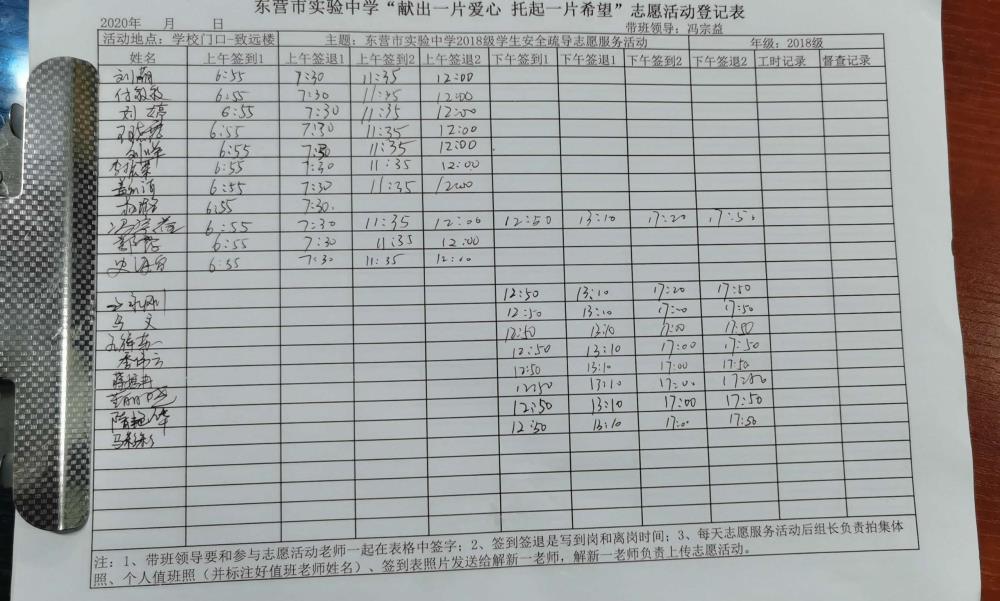 东营市实验中学“献出一片爱心 托起一片希望”志愿活动登记表
2020年 月 日 带班领导：冯宗益
活动地点：学校门口-致远楼 主题：东营市实验中学2018级学生安全疏导志愿服务活动 年级：2018级
姓名 上午签到1 上午签退1 上午签到2 上午签退2 下午签到1 下午签退1 下午签到2 下午签退2 工时记录 督查记录
刘 6:55 7:30 11:35 12:00
6:55 7:30 11:35 12:00
刘婷 6:55 7:30 11:35 12:00
6:55 7:30 11:35 12:00
6:55 7:30 11:35 12:00
6:55 7:30 11:35 12:00
6:55 7:30 11:35 12:00
6:55 7:30
冯宗益 6:55 7:30 11:35 12:00 12:50 13:10 17:20 17:50
6:55 7:30 11:35 12:00
史海 6:55 7:30 11:35 12:00
12:50 13:10 17:20 17:50
马文 12:50 13:10 17:00 17:50
12:50 13:10 17:00 17:50
李 12:50 13:10 17:00 17:50
12:50 13:10 17:00 17:50
12:50 13:10 17:00 17:50
隋艳华 12:50 13:10 17:00 17:50
马 12:50 13:10 17:00 17:50
注：1、带班领导要和参与志愿活动老师一起在表格中签字；2、签到签退是写到岗和离岗时间；3、每天志愿服务活动后组长负责拍集体
照、个人值班照（并标注好值班老师姓名）、签到表照片发送给解新一老师，解新一老师负责上传志愿活动。